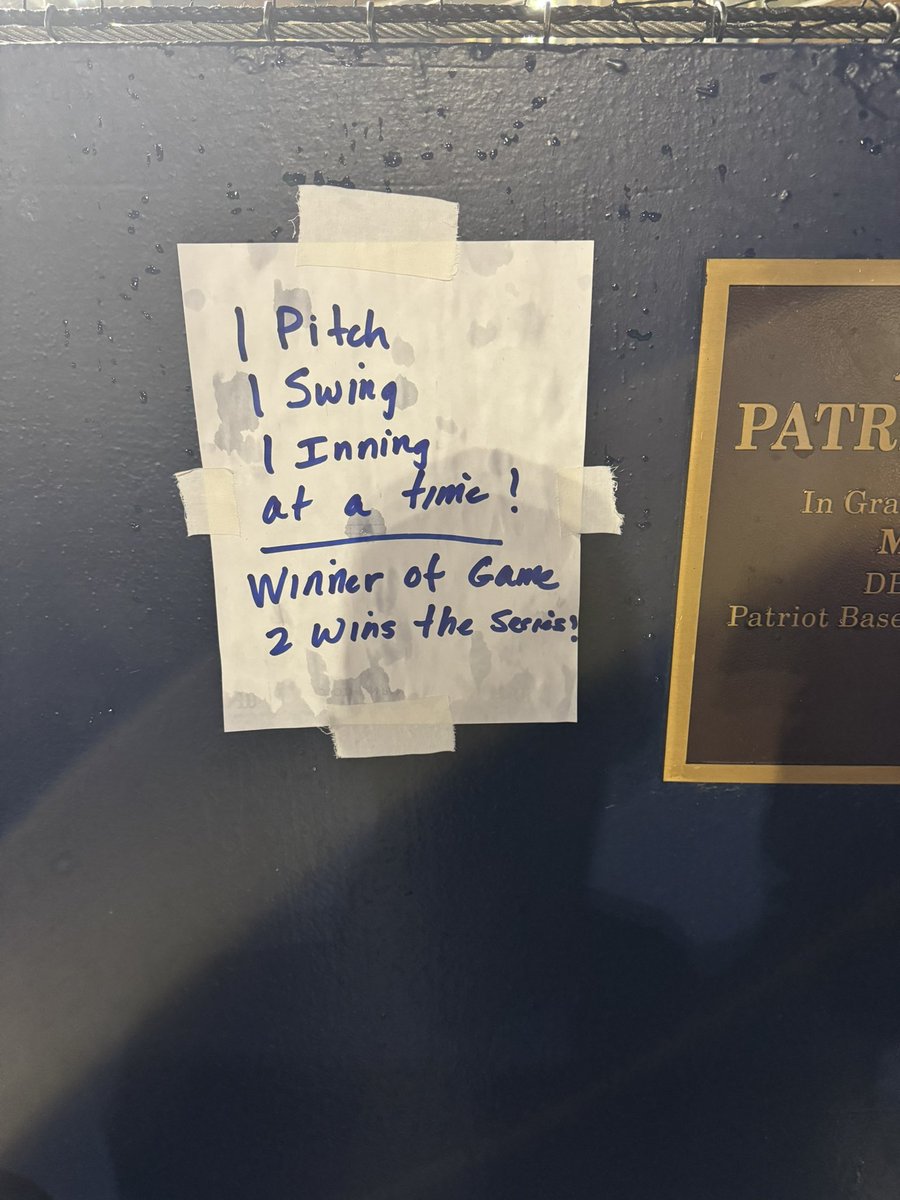 1 Pitch
1 Swing
1 Inning
at a time!
Winner of Game
2 wins the Series!
PATR
In Gra
M
DE
Patriot Base